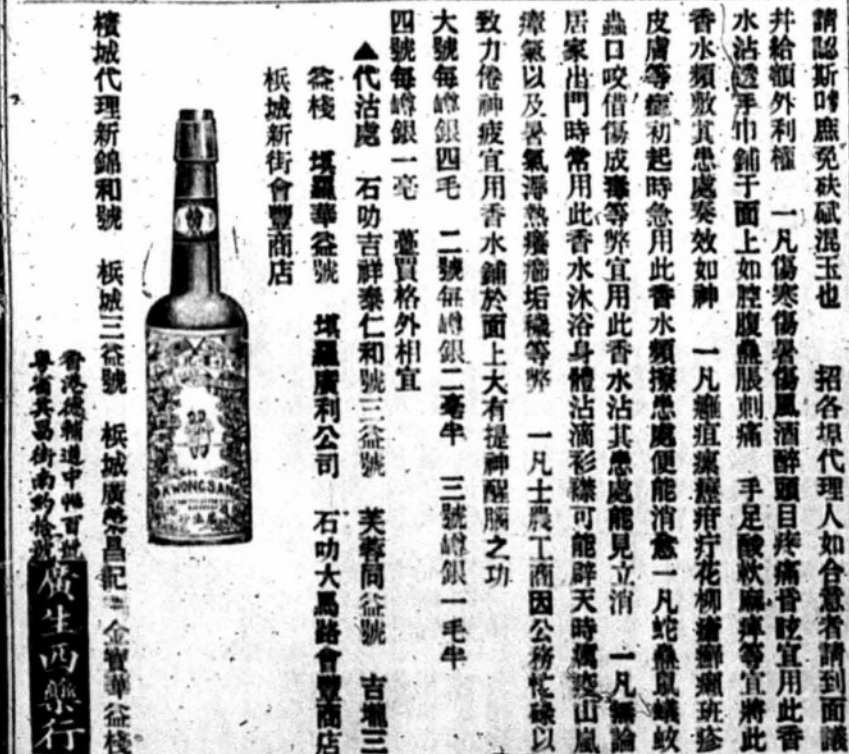 請認斯嘜庶免砆碔混玉也　招各埠代理人如合意者請到面議
井給額外利權　一凡傷寒傷暑傷風酒醉頭目疼痛昏眩宜用此香
水沾透手巾鋪于面上如膣腹蠱脹刺痛　手足酸軟麻痺等宜將此
香水頻敷其患處奏效如神　一凡癰疽瘰癧疳疔花柳瘡癬癩斑疹
皮膚等症初起時急用此香水頻擦患處便能消愈一凡蛇蟲鼠蟻蚊
蟲口咬借傷成毒等弊宜用此香水沾其患處能見立消　一凡無論
居家出門時常用此香水沐浴身體沾滴衫襟可能辟天時癘疫山嵐
瘴氣以及暑氣濕熱癢瘡垢穢等弊　一凡士農工商因公務忙碌以
致力倦神疲宜用香水鋪於面上大有提神醒腦之功
大號每罇銀四毛　二號每罇銀二毫半　三號罇銀一毛半
四號每罇銀一毫　躉買格外相宜
▲代沽處　石叻吉祥泰仁和號三益號　芙蓉同益號　吉壠三
益棧　壩羅華益號　壩羅廣利公司　石叻大馬路會豐商店
梹城新街會豐商店
WONG SANG
檳城代理新錦和號　梹城三益號　梹城廣榮昌記　金寶華益棧
香港德輔道中
粵省其昌街南約
廣生西藥行